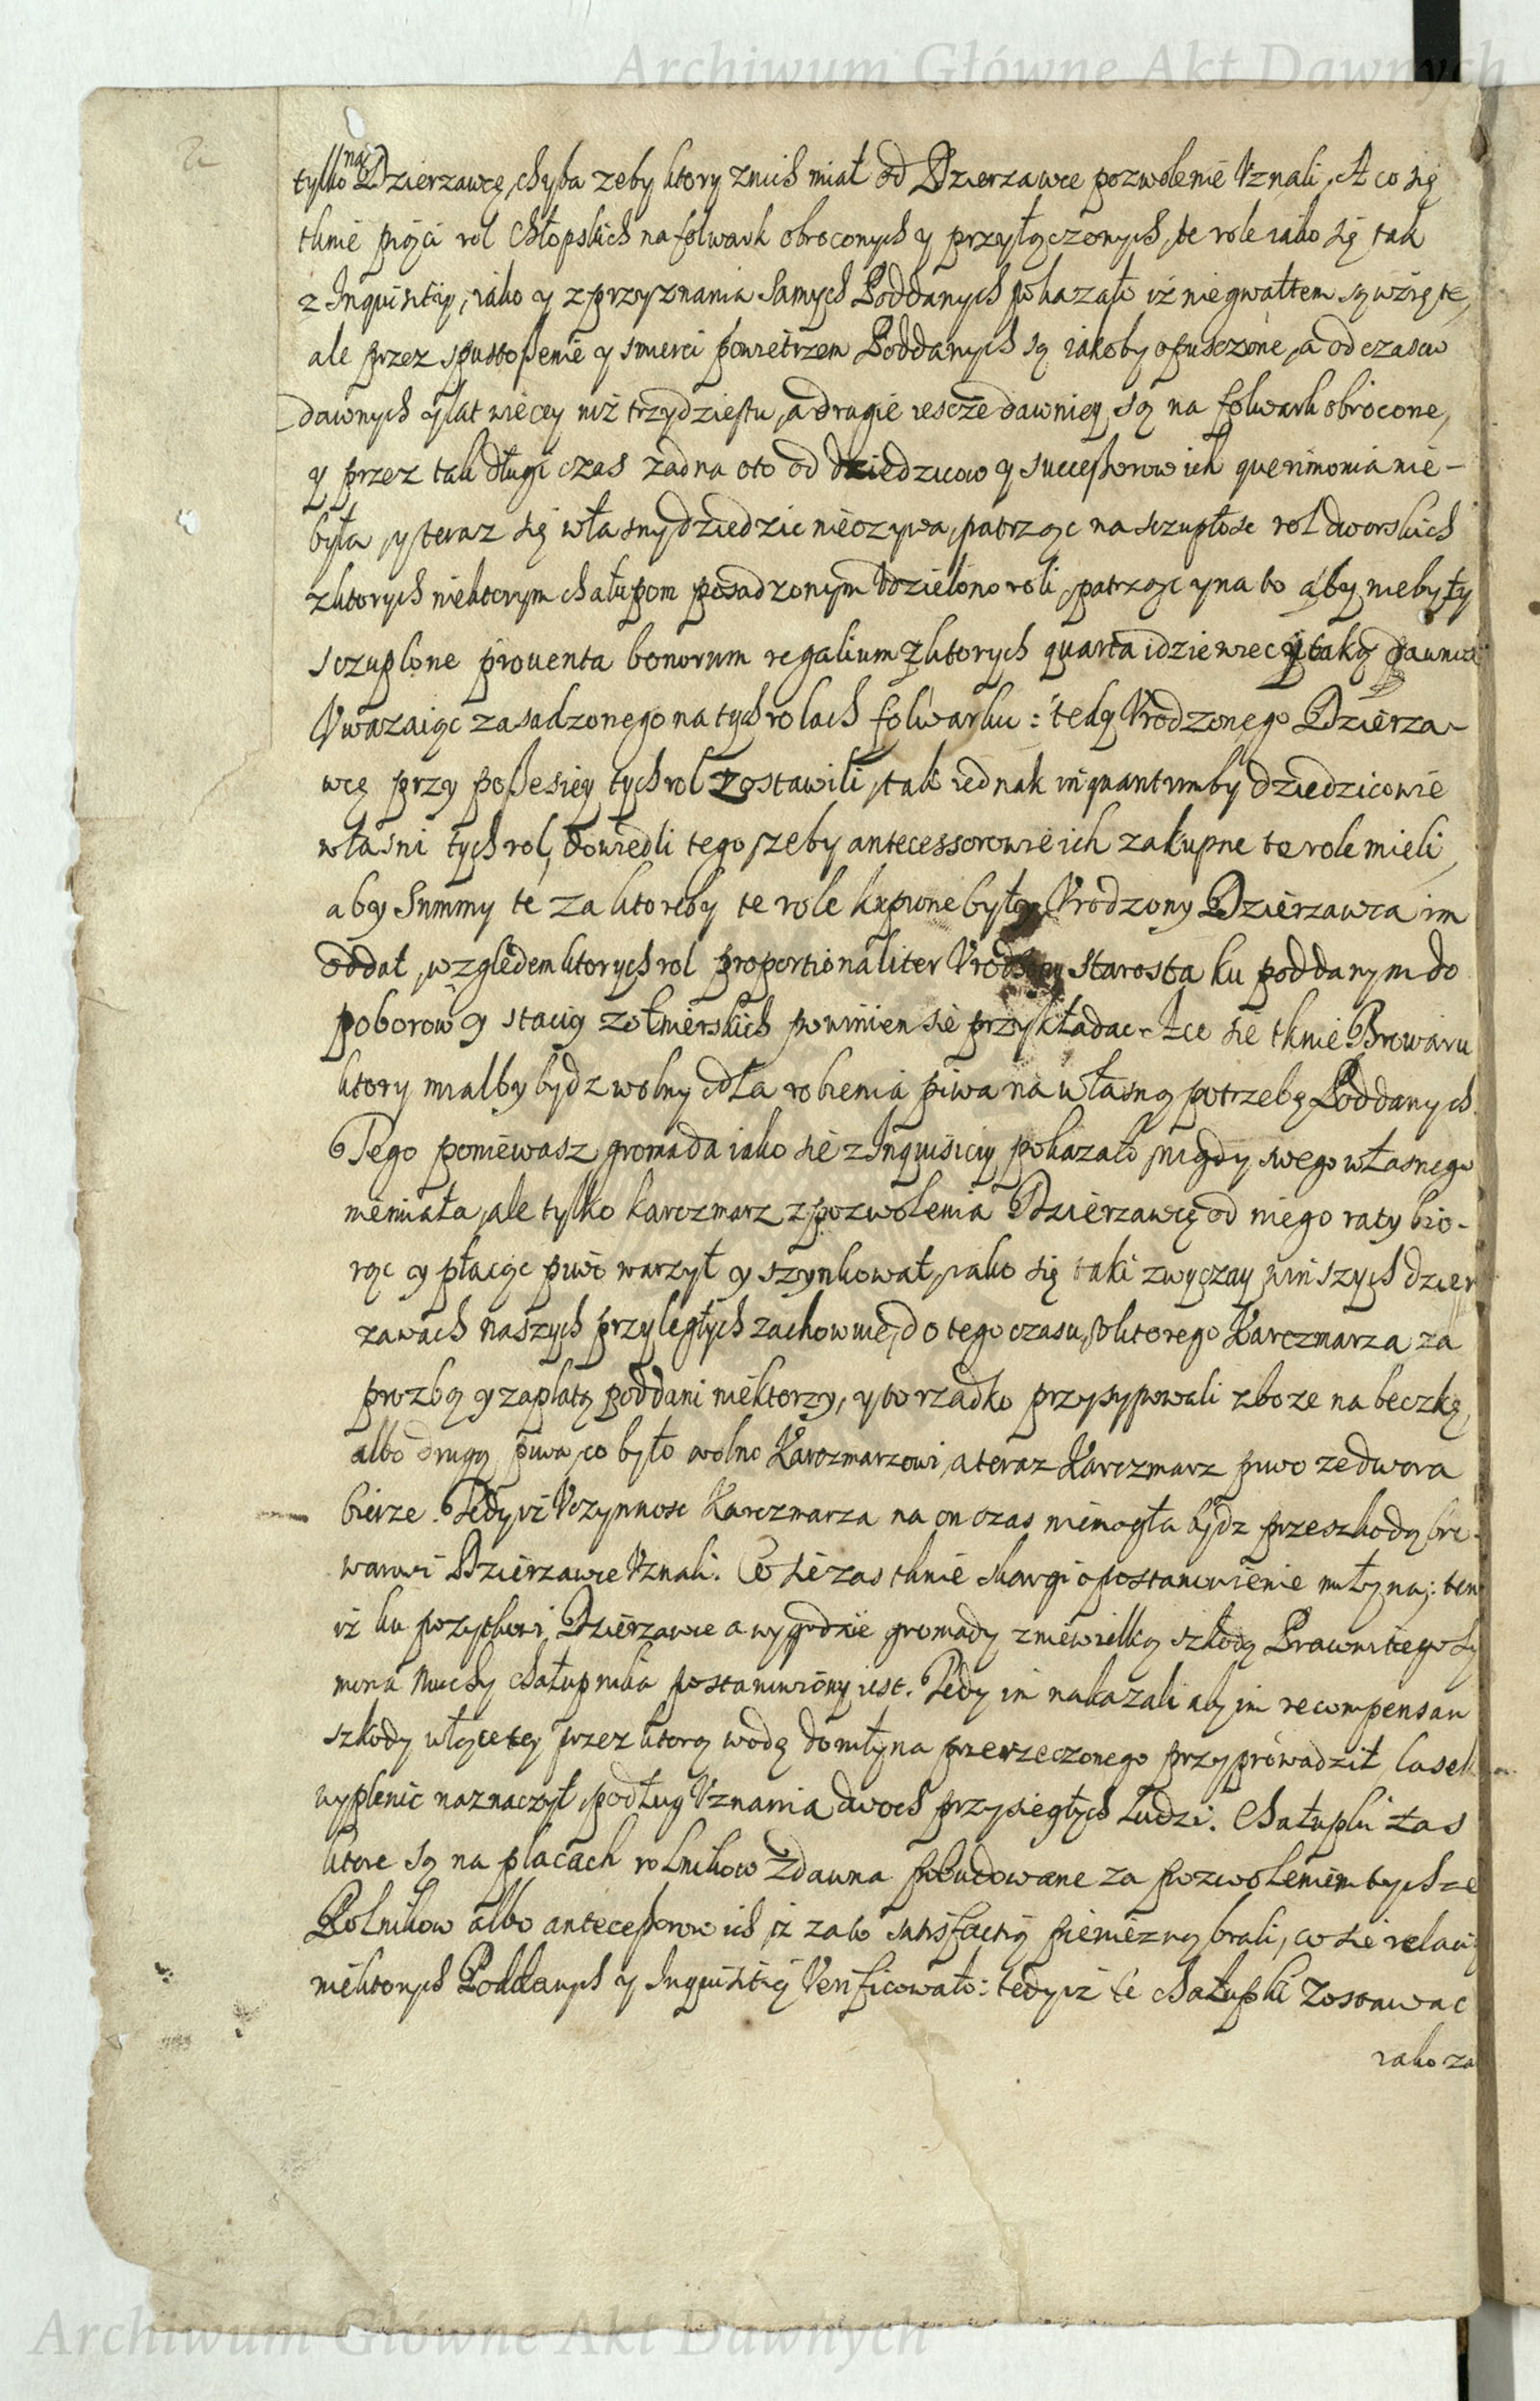 Archiwum Główne Akt Dawnych
2
tylko na Dzierzawcę, chyba zeby ktory znich miał od Dzierzawce pozwolenie Vznali. A co się
tknie pięci rol Chłopskich na folwark obroconych y przyłączonych, te role iako się tak
z Inquisitiy, iako y z przyznania samych Poddanych pokazało iż nie gwałtem są wzięte,
ale przez spustoszenie y smierci powietrzem Poddanych są iakoby opusczone, a od czasow
dawnych y lat więcey niż trzydziestu, a drugie iescze dawniey są na folwark obrocone,
y przez tak długi czas zadna oto od dziedzicow y successorow ich querimonia nie-
była, y teraz się własny dziedzic nieozywa, patrząc na sczupłosc rol dworskich
z ktorych niektorym chałupom posadzonym Vdzielono roli, patrząc y na to aby niebyły
sczuplone prouenta bonorum regalium z ktorych quarta idzie wiec y taką
Vwazaiąc zasadzonego na tych rolach folwarku: tedy Vrodzonego Dzierza-
wcę przy possesiey tych rol zostawili, tak iednak inquantumby dziedzicowie
własni tych rol, dowiedli tego, zeby antecessorowie ich zakupne te role mieli,
aby Summy te za ktoreby te role kupione były Vrodzony Dzierzawca im
oddał, względem ktorych rol proportionaliter Vrodzony Starosta ku poddanym do
poborow y staciy zołnierskich powinien sie przykładac. A co sie tknie Browaru
ktory miałby bydz wolny dla robienia piwa na własną potrzebę Poddanych.
Tego poniewasz gromada iako sie z Inquisiciy pokazało, nigdy swego własnego
niemiała, ale tylko karczmarz z pozwolenia Dzierzawcę od niego raty bio-
rąc y płacąc piwo warzył y szynkował, iako się taki zwyczay w inszych dzier
zawach naszych przyległych zachowuie, do tego czasu, V ktorego Karczmarza za
prozbą y zapłatą poddani niektorzy, y to rzadko przysypowali zboze na beczkę,
albo drugą piwa, co było wolno Karczmarzowi, a teraz Karczmarz piwo ze dwora
bierze. Tedy iż Vczynnosc Karczmarza na on czas niemogła bydz przeszkodą bro-
warowi Dzierzawce Vznali. Co sie zas tknie skargi o postanowienie młyna: ten
iż ku pozytkowi Dzierzawce a wygodzie gromady z niewielką szkodą Prawnitego Sy
mona Muchy chałupnika postanowiony iest. Tedy im nakazali aby im recompensam
szkody przez ktorą wodę do młyna przerzeczonego przyprowadził lasek
wyplenic naznaczył, podług Vznania dwoch przysięgłych Ludzi. Chałupki zas
ktore są na placach rolnikow zdawna pobudowane za pozwoleniem tychze
Rolnikow albo antecessorow ich iż za to satisfactią pieniezną brali, co sie relacią
niektorych Poddanych y Inquisitią Verificowało: tedy iż te chałupki zostawac
iako za
Archiwum Główne Akt Dawnych